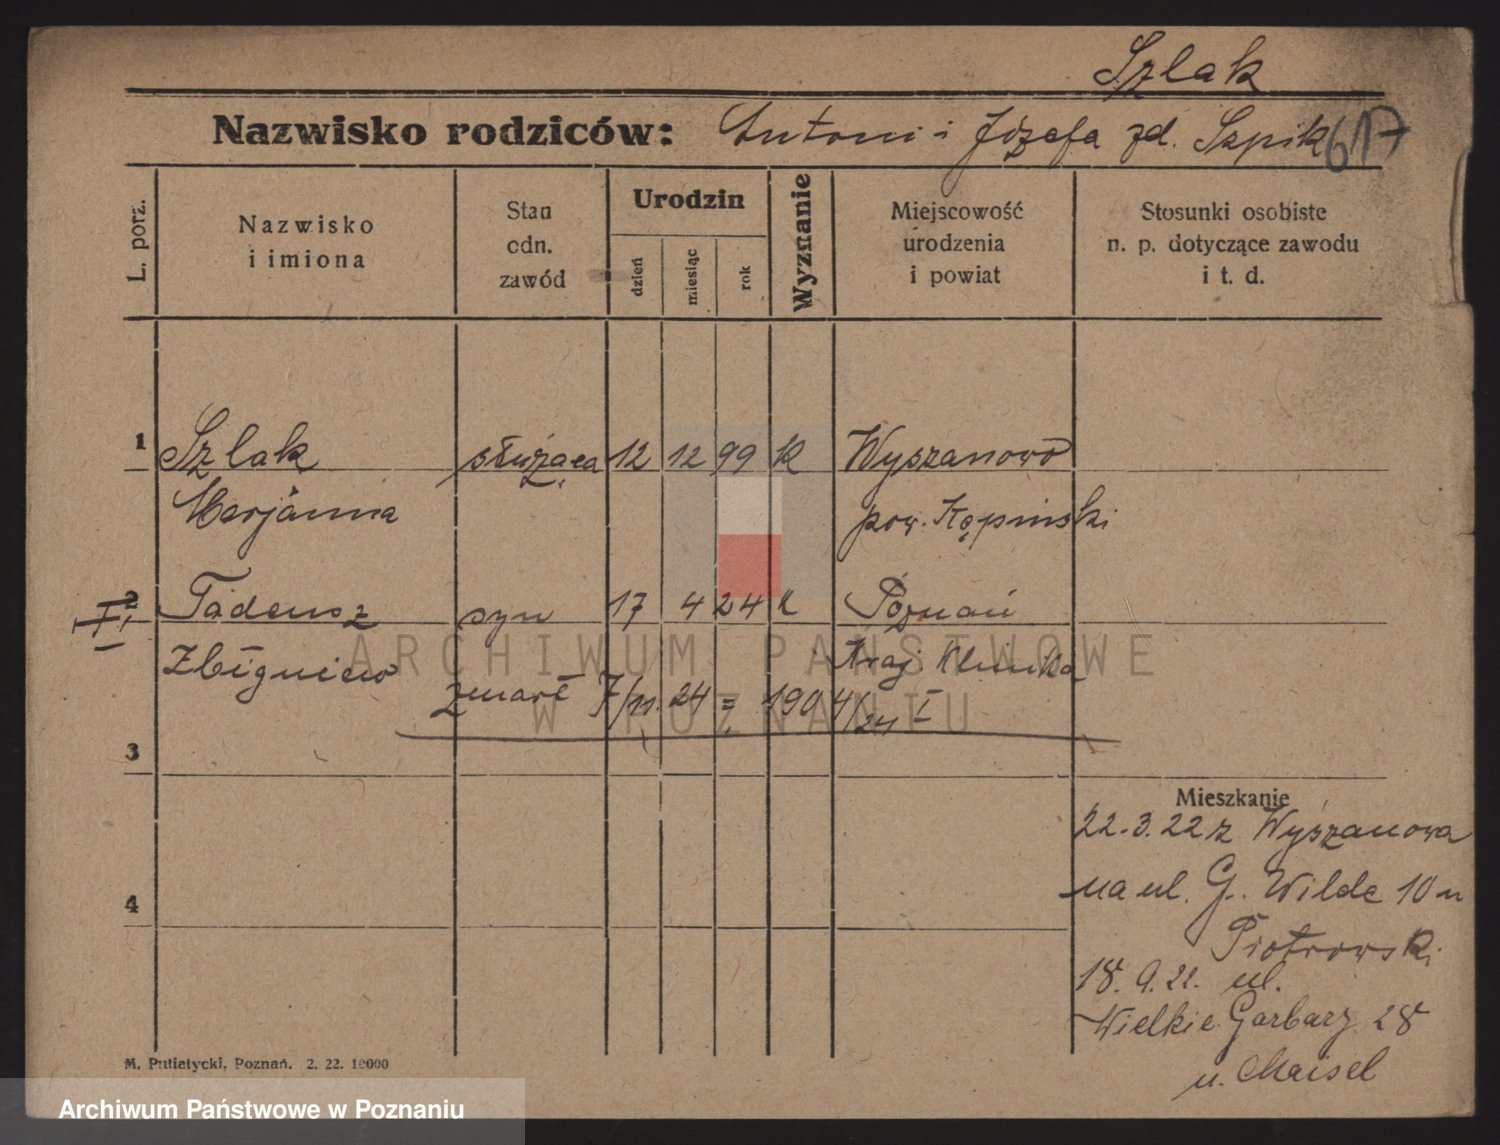 Szlak
Nazwisko rodziców: Antoni i Józefa zd. Szpik 617
L. porz.
Nazwisko
i imiona
Stan
odn.
zawód
Urodzin
dzień
miesiąc
rok
Wyznanie
Miejscowość
urodzenia
i powiat
Stosunki osobiste
n. p. dotyczące zawodu
i t. d.
1 Szlak służąca 12 12 99 k Wyszanowo
Marjanna pow. Kępiński
2 Tadeusz syn 17 4 24 k Poznań
Zbigniew Kraj. Klinika
zmarł 7/11. 24 = 1904/24 I
3
4
Mieszkanie
22.3.22 z Wyszanowa
na ul. G. Wilde 10 u
Piotrowski
18. 9. 22. ul.
Wielkie Garbary 28
u. Maisel
M. Putiatycki, Poznań. 2. 22. 10000
ARCHIWUM PAŃSTWOWE
W POZNANIU
Archiwum Państwowe w Poznaniu